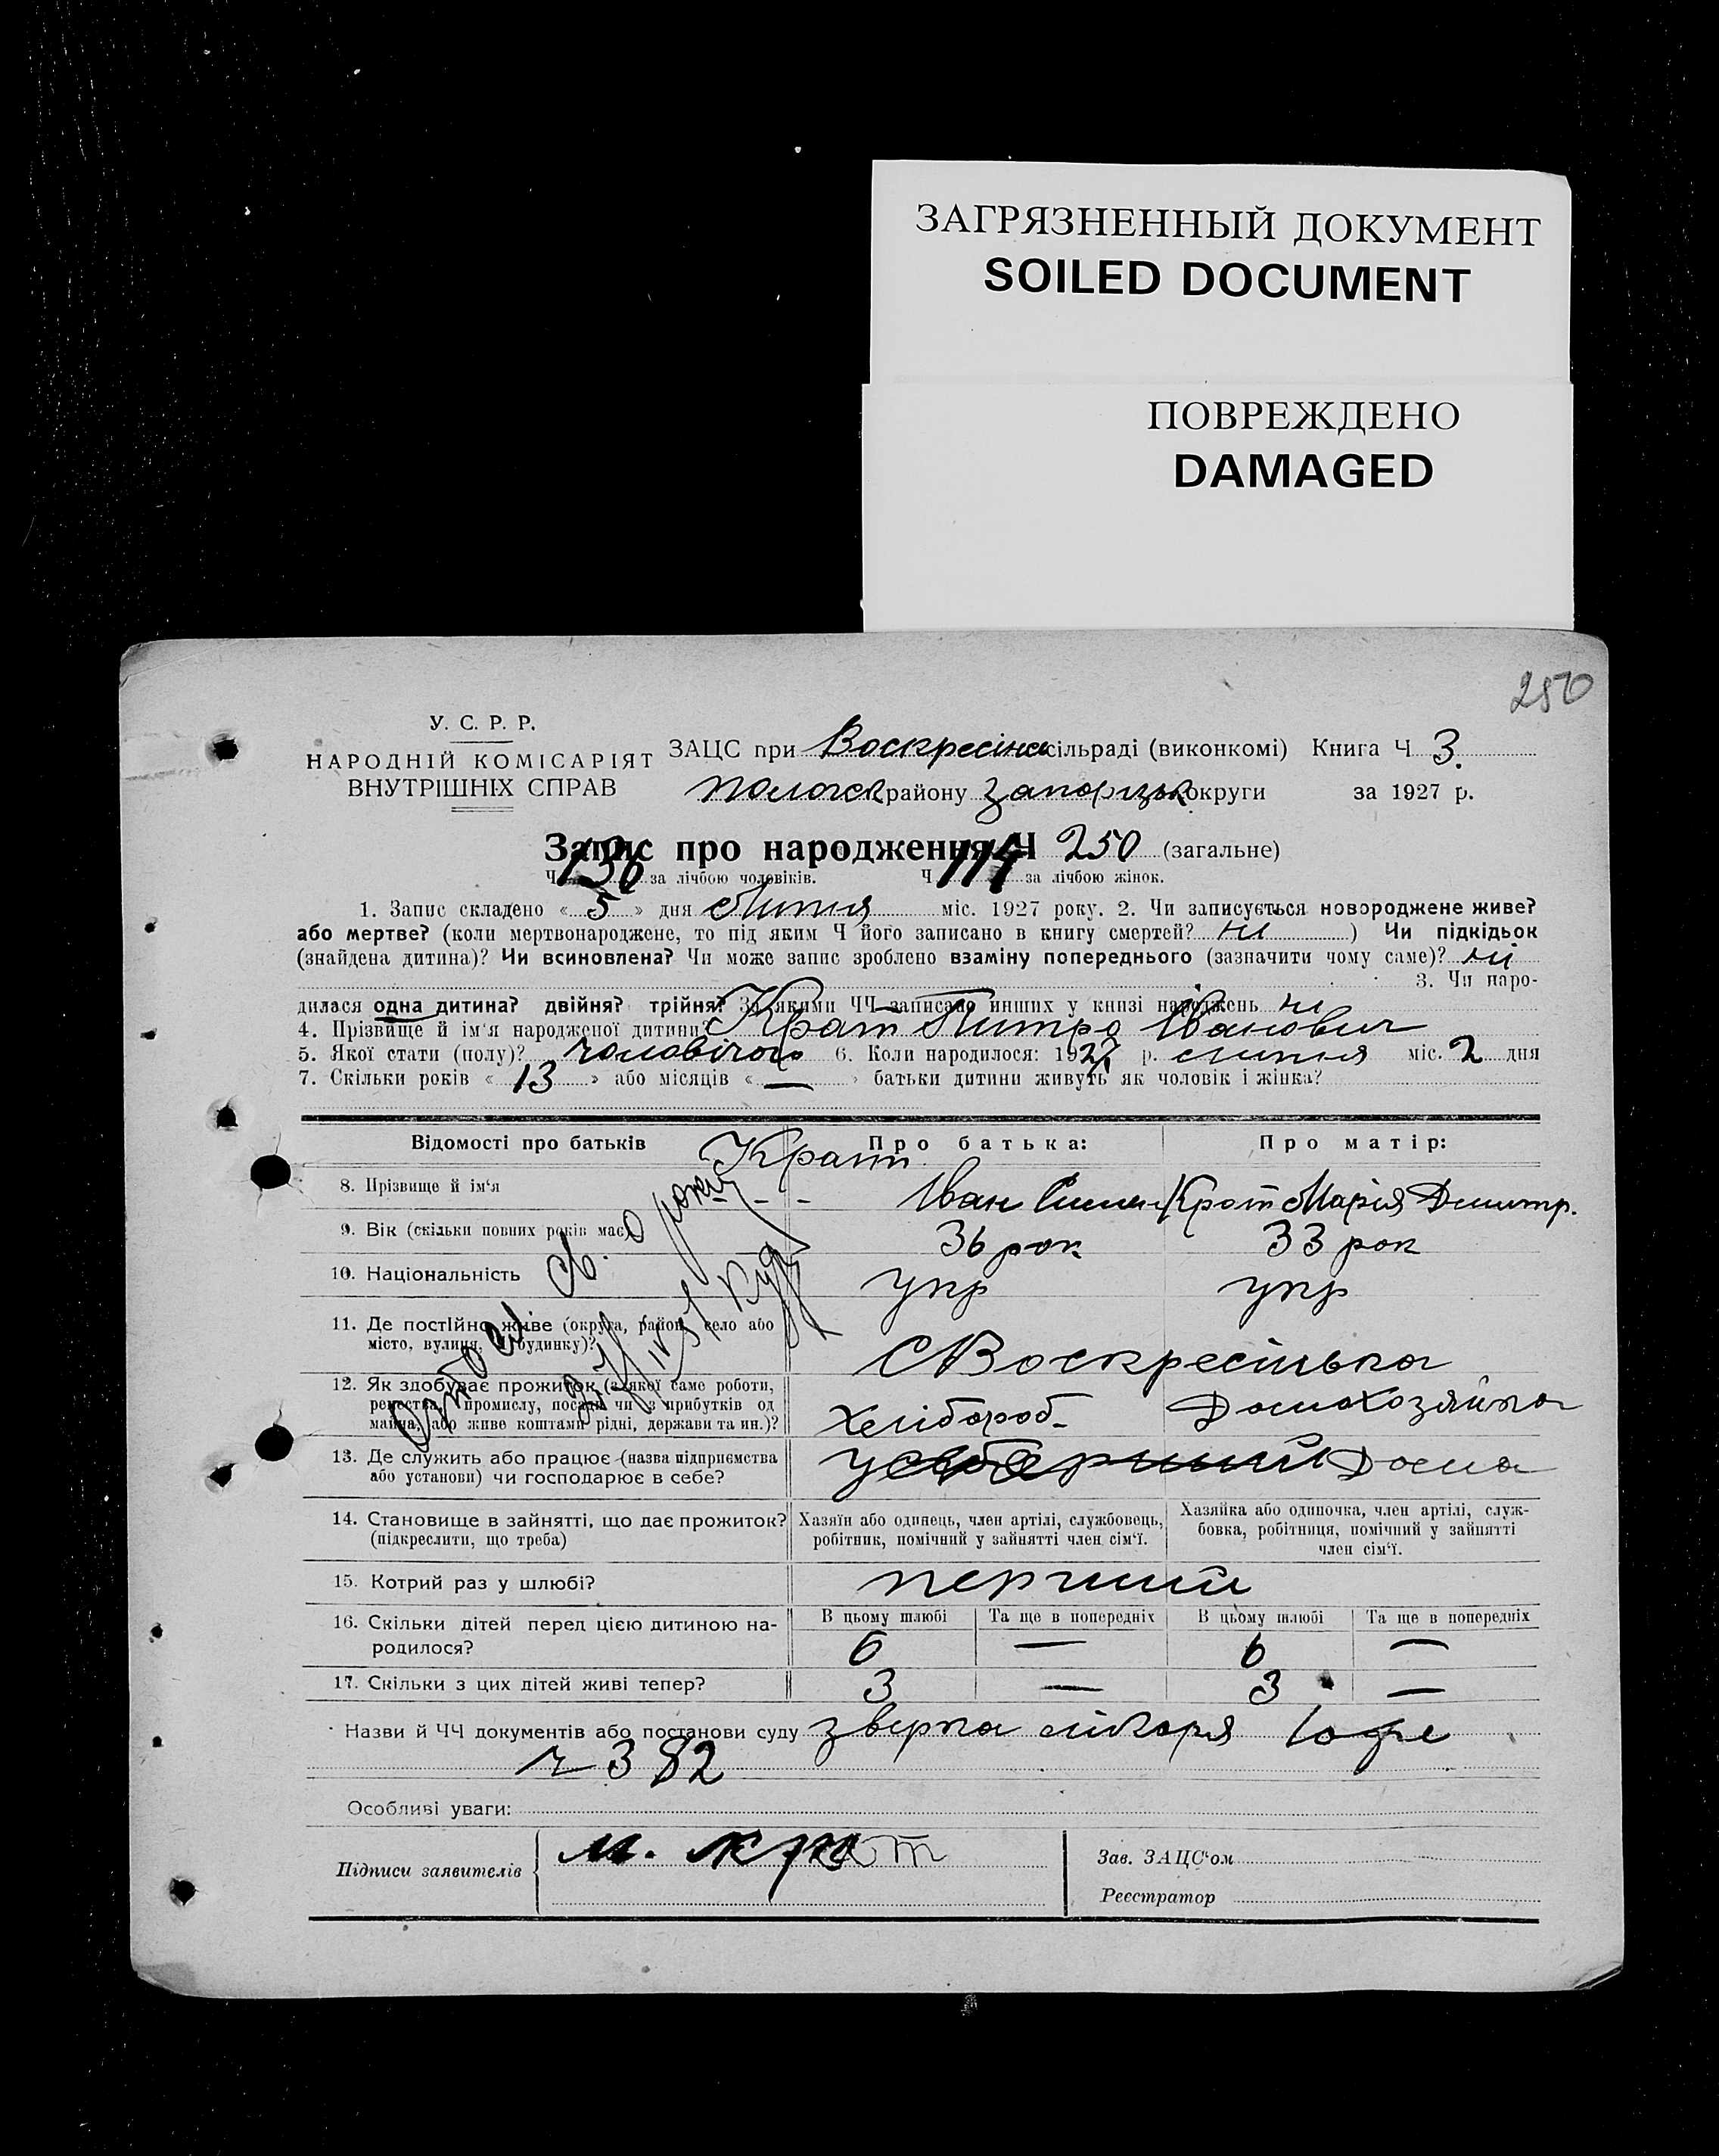 ЗАГРЯЗНЕННЫЙ ДОКУМЕНТ
SOILED DOCUMENT
ПОВРЕЖДЕНО
DAMAGED
250
У. С. Р. Р.
НАРОДНІЙ КОМІСАРІЯТ
ВНУТРІШНІХ СПРАВ
ЗАЦС при Воскресінск сільраді (виконкомі) Книга Ч 3.
Пологск району Запорізьк округи за 1927 р.
Запис про народження Ч 250 (загальне)
Ч 136 за лічбою чоловіків. Ч 114 за лічбою жінок.
1. Запис складено « 5 » дня Липня міс. 1927 року. 2. Чи записується новороджене живе?
або мертве? (коли мертвонароджене, то під яким Ч його записано в книгу смертей? ні ) Чи підкідьок
(знайдена дитина)? Чи всиновлена? Чи може запис зроблено взаміну попереднього (зазначити чому саме)? ні
3. Чи наро-
дилася одна дитина? двійня? трійня? За якими ЧЧ записано инших у книзі народжень ні
4. Прізвище й ім'я народженої дитини? Крат Питро Іванович
5. Якої стати (полу)? чоловічого 6. Коли народилося: 1927 р. липня міс. 2 дня
7. Скільки років « 13 » або місяців « — » батьки дитини живуть як чоловік і жінка?
Відомості про батьків Про батька: Про матір:
Крат
8. Прізвище й ім'я Іван Крат Марія Дмитр.
9. Вік (скільки повних років має) 36 рок 33 рок
10. Національність укр укр
11. Де постійно живе (округа, район, село або
місто, вулиця, Ч будинку)? С Воскресінька
12. Як здобуває прожиток (з якої саме роботи,
ремества, промислу, посади чи з прибутків од
майна, або живе коштами рідні, держави та ин.)? Хлібороб- Домохозяйка
13. Де служить або працює (назва підприємства
або установи) чи господарює в себе? у себе Дома
14. Становище в зайнятті, що дає прожиток?
(підкреслити, що треба)
Хазяїн або одинець, член артілі, службовець,
робітник, помічний у зайнятті член сім'ї.
Хазяйка або одиночка, член артілі, служ-
бовка, робітниця, помічний у зайнятті
член сім'ї.
15. Котрий раз у шлюбі? перший
16. Скільки дітей перед цією дитиною на-
родилося?
В цьому шлюбі Та ще в попередніх В цьому шлюбі Та ще в попередніх
6 — 6 —
17. Скільки з цих дітей живі тепер? 3 — 3 —
Назви й ЧЧ документів або постанови суду лікаря
ч 382
Особливі уваги:
Підписи заявителів м. крат
Зав. ЗАЦС'ом
Реєстратор